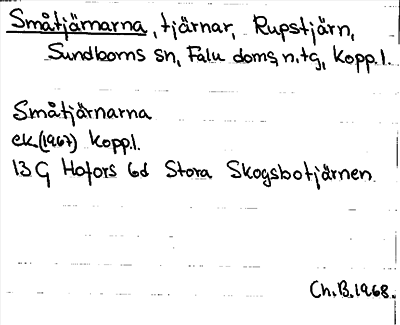 Småtjärnarna, tjärnar, Rupstjärn,
Sundborns sn, Falu doms. n. tg, Kopp. l.
Småtjärnarna
ek (1967) Kopp. l.
13 G Hofors 6d Stora Skogsbotjärnen.
Ch. B. 1968.